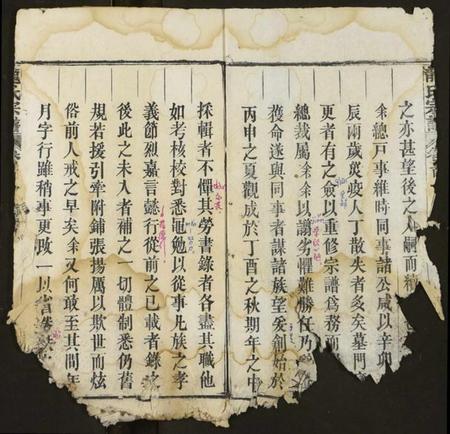 之亦甚望後之人嗣而續
余總戸事維時同事諸公咸以辛卯
辰兩歲災疫人丁散失者多矣墓門
更者有之僉以重修宗譜爲務而
總裁屬余余以譾劣懼難勝任乃
獲命遂與同事者謀諸族望爰創始於
丙申之夏觀成於丁酉之秋期年之中
採輯者不憚其勞書錄者各盡其職他
如考核校對悉黽勉以從事凡族之孝
義節烈嘉言懿行從前之已載者錄之
後此之未入者補之一切體制悉仍舊
規若援引牽附鋪張揚厲以欺世而炫
俗前人戒之早矣余又何敢至其間年
月字行雖稍事更改一以
龍氏宗譜